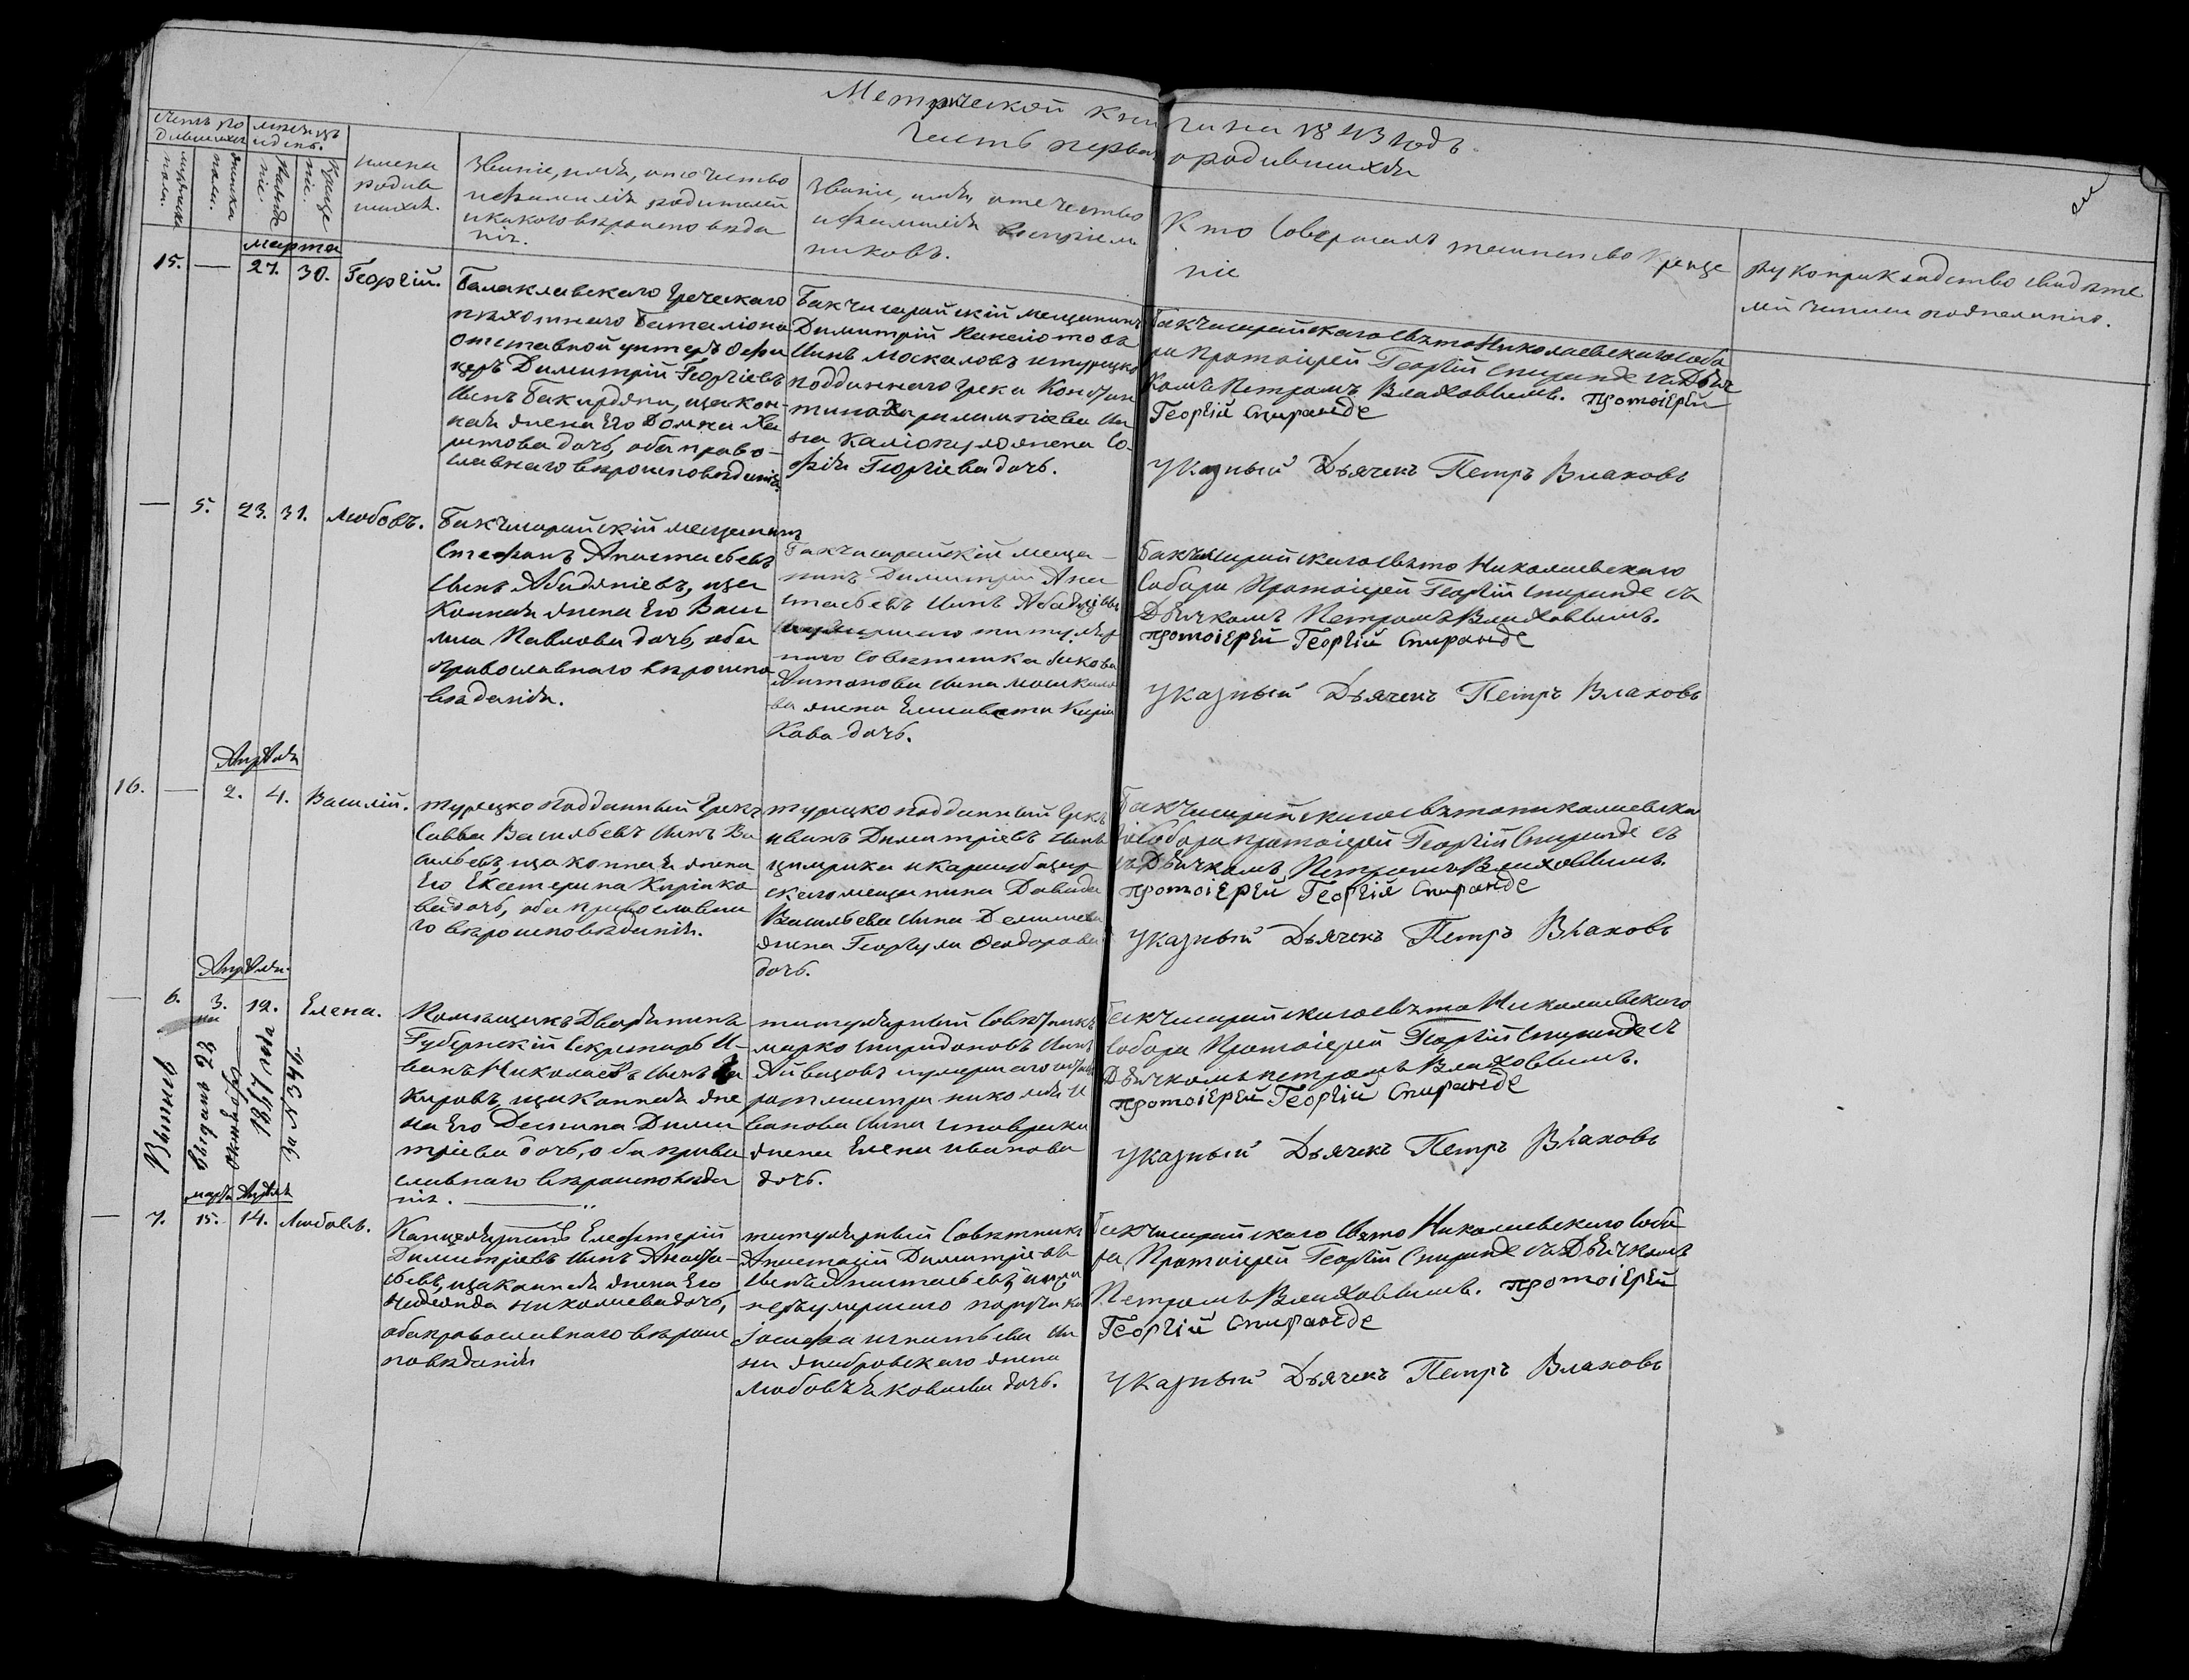 Метрической книги на 1843 годъ.
Часть первая о родившихся
Счетъ ро
дившихся
мѣсяцъ
и день.
мужеска
полъ.
женска
полъ.
Рожде
ніе.
Креще
ніе.
имена
родив
шихся.
Званіе, имя, отечество
и фамилія родителей
и какого вѣроисповѣда
нія.
Званіе, имя, отечество
и фамилія воспріем
никовъ.
Кто совершалъ таинство Креще
ніе
Рукоприкладство свидѣте
лей
марта
15. — 27. 30. Георгій.
Балаклавскаго Греческаго
пѣхотнаго баталіона
отставной унтеръ офи
церъ Димитрій Георгіевъ
сынъ законная
жена Его Домна
дочь, оба право-
славнаго вѣроисповѣданія.
Бакчисарайскій мещанинъ
Димитрій
сынъ Москаловъ и турецко
подданнаго Грека Констан
тина сы
на жена Со-
фія Георгіева дочь.
Бакчисарайскаго Свято Николаевскаго Собо
ра Протоіерей Георгій Спиранде съ Дьяч
комъ Петромъ Влаховымъ. Протоіерей
Георгій Спиранде
Указный Дьячекъ Петръ Влаховъ
— 5. 23. 31. Любовь.
Бакчисарайскій мещанинъ
Стефанъ Анастасьевъ
сынъ за
конная жена Его Васи
лиса Павлова дочь, оба
православнаго вѣроиспо
вѣданія.
Бакчисарайскій меща-
нинъ Димитрій Ана
стасьевъ сынъ
умершаго титуляр
наго Совѣтника
Антонова сына Москало
ва жена Елисавета Киріа
кова дочь.
Бакчисарайскаго Свято Николаевскаго
Собора Протоіерей Георгій Спиранде съ
Дьячкомъ Петромъ Влаховымъ.
Протоіерей Георгій Спиранде
Указный Дьячекъ Петръ Влаховъ
Апрѣля
16. — 2. 4. Василій.
турецко подданный Грекъ
Савва Васильевъ сынъ Ва
сильевъ, законная жена
Его Екатерина Киріако
ва дочь, оба православна
го вѣроисповѣданія.
турецко подданный Грекъ
иванъ Димитріевъ сынъ
и карасубазар
скаго мещанина Давида
Васильева сына
жена Феодорова
дочь.
Бакчисарайскаго Свято николаевска
го Собора протоіерей Георгій Спиранде съ
съ Дьячкомъ, Петромъ Влаховымъ.
Протоіерей Георгій Спиранде
Указный Дьячекъ Петръ Влаховъ
Апрѣля.
— 6. 3. 12. Елена.
выданъ 28
октября
1857 года
за N 346.
Помѣщикъ Дворянинъ
Губернскій Секретарь И-
ванъ Николаевъ сынъ
законная же
на Его Деспина Дими
тріева дочь, оба право
славнаго вѣроисповѣда
нія.
титулярный Совѣтникъ
марко Спиридоновъ сынъ
Айвазовъ и умершаго
ротмистра николая И
ванова сына
жена Елена иванова
дочь.
Бакчисарайскаго Свято Николаевскаго
Собора Протоіерей Георгій Спиранде съ
Дьячкомъ петромъ Влаховымъ.
Протоіерей Георгій Спиранде
Указный Дьячекъ Петръ Влаховъ
марта Апрѣля
— 7. 15. 14. Любовь.
Канцеляристъ Елефтерій
Димитріевъ сынъ Анаста-
сьевъ, законная жена Его
Надежда николаева дочь,
оба православнаго вѣроис
повѣданія
титулярный Совѣтникъ
Анастасій Димитріевъ
сынъ Анастасьевъ,
умершаго поручика
Іосифа игнатьева сы
на жена
Любовь дочь.
Бакчисарайскаго Свято Николаевскаго Собо
ра, Протоіерей Георгій Спиранде съ Дьячкомъ
Петромъ Влаховымъ. Протоіерей
Георгій Спиранде
Указный Дьячекъ Петръ Влаховъ